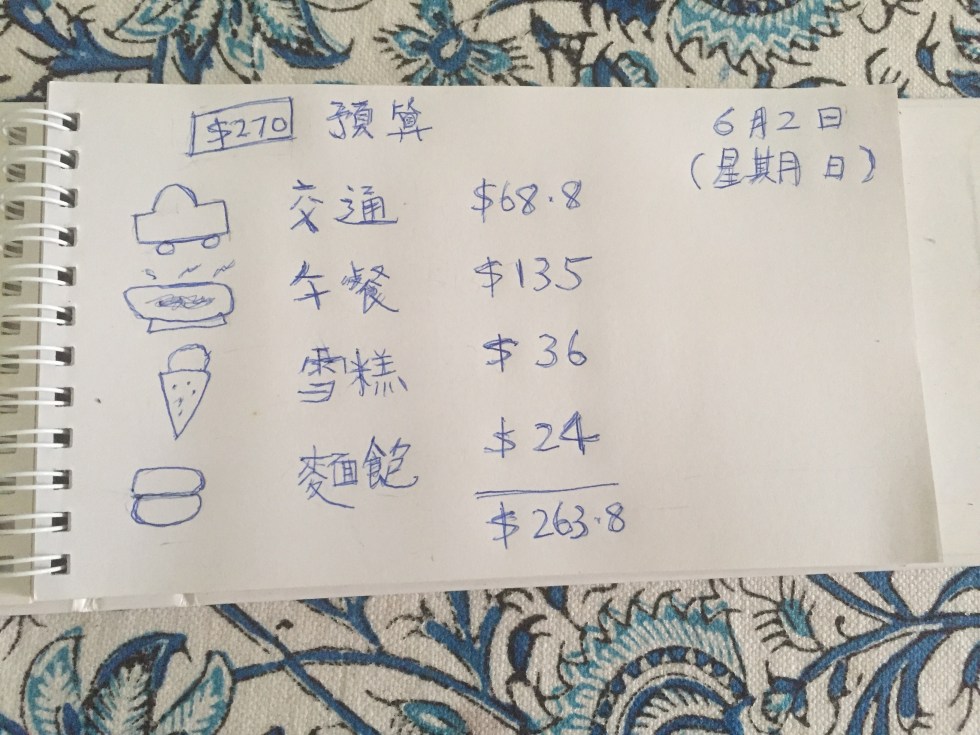 $270 預算
6月2日
(星期月日)
交通 $68.8
午餐 $135
雪糕 $36
麵飽 $24
$263.8